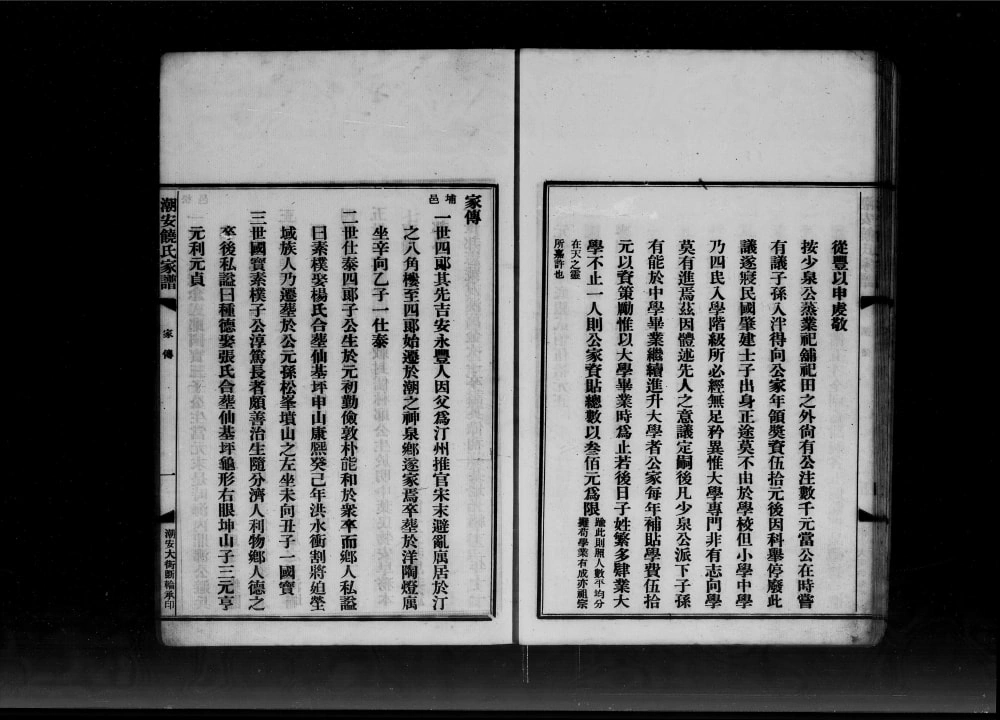 從豐以申虔敬
按少泉公蒸業祀舖祀田之外尙有公注數千元當公在時嘗
有議子孫入泮得向公家年領奬資伍拾元後因科舉停廢此
議遂寢民國肇建士子出身正途莫不由於學校但小學中學
乃四民入學階級所必經無足矜異惟大學專門非有志向學
莫有進焉茲因體述先人之意議定嗣後凡少泉公派下子孫
有能於中學畢業繼續進升大學者公家每年補貼學費伍拾
元以資策勵惟以大學畢業時爲止若後日子姓繁多肆業大
學不止一人則公家資貼總數以叁佰元爲限踰此則照人數平均分
攤苟學業有成亦祖宗
在天之靈
所嘉許也
家傳
埔邑
一世四郞其先吉安永豐人因父爲汀州推官宋末避亂寓居於汀
之八角樓至四郞始遷於潮之神泉鄉遂家焉卒塟於洋陶燈寓
坐辛向乙子一仕泰
二世仕泰四郞子公生於元初勤儉敦朴能和於衆卒而鄉人私謚
曰素樸娶楊氏合塟仙基坪申山康熙癸己年洪水衝割將廹塋
域族人乃遷塟於公元孫松峯墳山之左坐未向丑子一國寶
三世國寶素樸子公淳篤長者頗善治生隨分濟人利物鄉人德之
卒後私謚曰種德娶張氏合塟仙基坪龜形右眼坤山子三元亨
元利元貞
潮安饒氏家譜
家傳
一
潮安大街斯輪承印